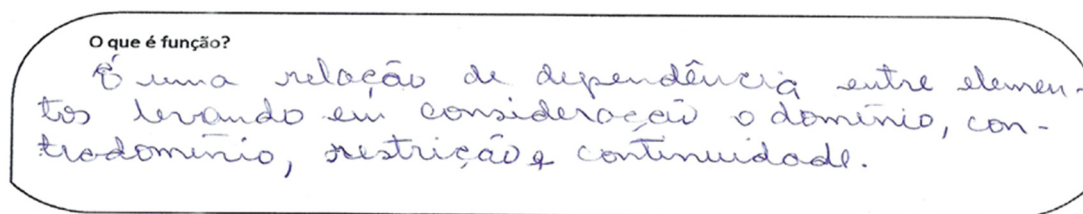 O que é função?
É uma relação de dependência entre elemen-
tos levando em consideração o domínio, con-
tradomínio, restrição e continuidade.